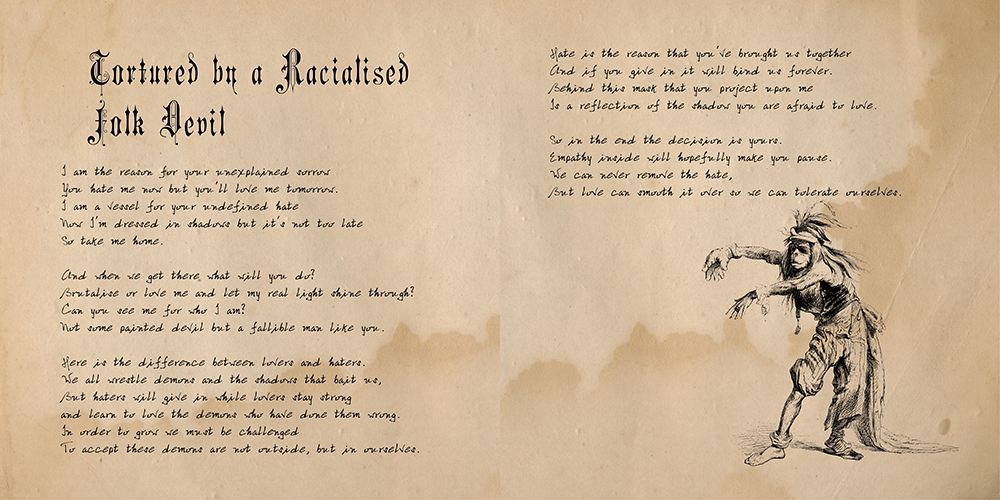 Tortured by a Racialised
Folk Devil
I am the reason for your unexplained sorrow
You hate me now but you'll love me tomorrow.
I am a vessel for your undefined hate
Now I'm dressed in shadows but it's not too late
So take me home.
And when we get there what will you do?
Brutalise or love me and let my real light shine through?
Can you see me for who I am?
Not some painted devil but a fallible man like you.
Here is the difference between lovers and haters.
We all wrestle demons and the shadows that bait us,
But haters will give in while lovers stay strong
and learn to love the demons who have done them wrong.
In order to grow we must be challenged
To accept these demons are not outside, but in ourselves.
Hate is the reason that you've brought us together
And if you give in it will bind us forever.
Behind this mask that you project upon me
Is a reflection of the shadow you are afraid to love.
So in the end the decision is yours.
Empathy inside will hopefully make you pause.
We can never remove the hate,
But love can smooth it over so we can tolerate ourselves.